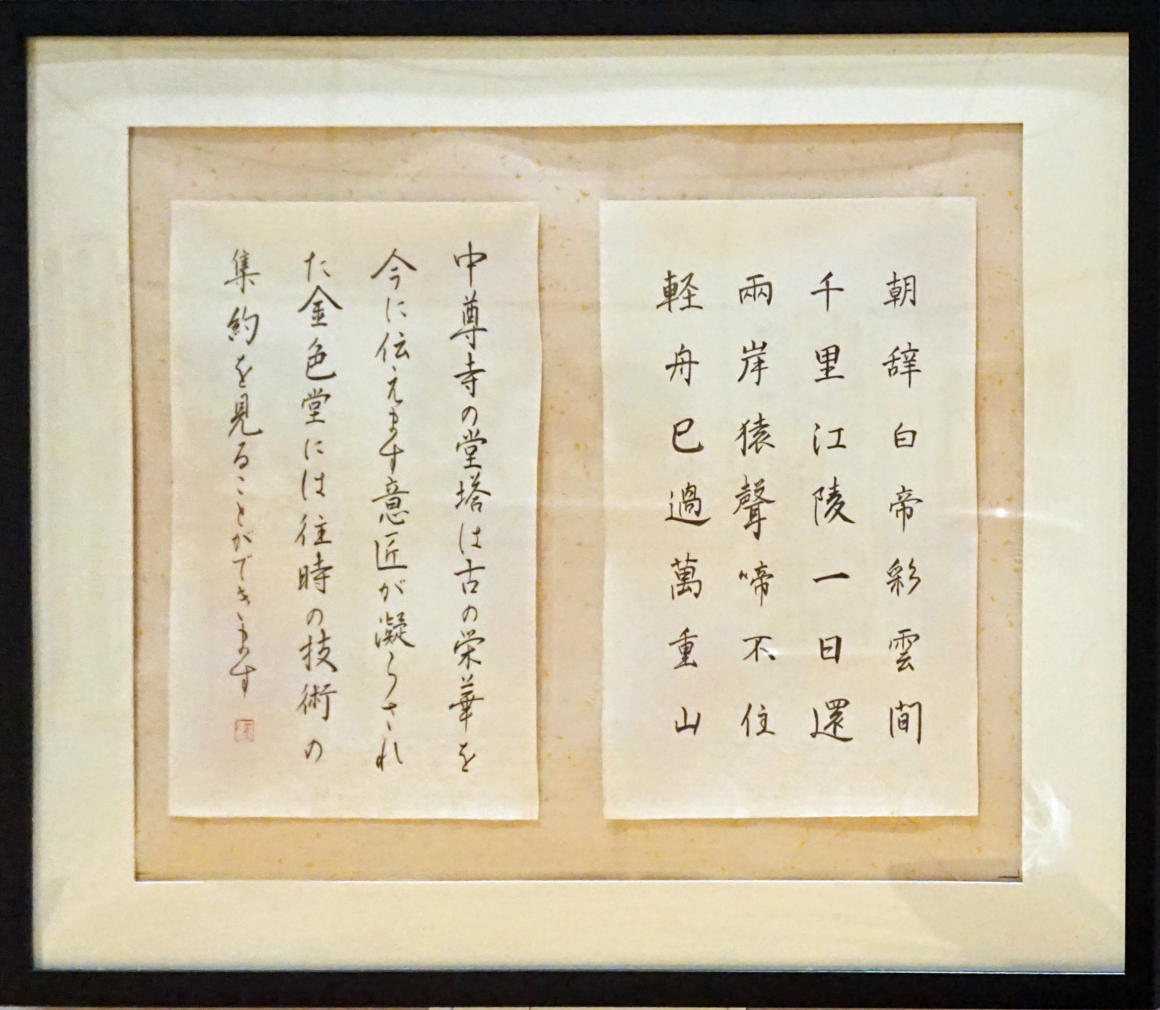 朝辞白帝彩雲間
千里江陵一日還
兩岸猿聲啼不住
軽舟已過萬重山
中尊寺の堂塔は古の栄華を
今に伝えます意匠が凝らされ
た金色堂には往時の技術の
集約を見ることができます